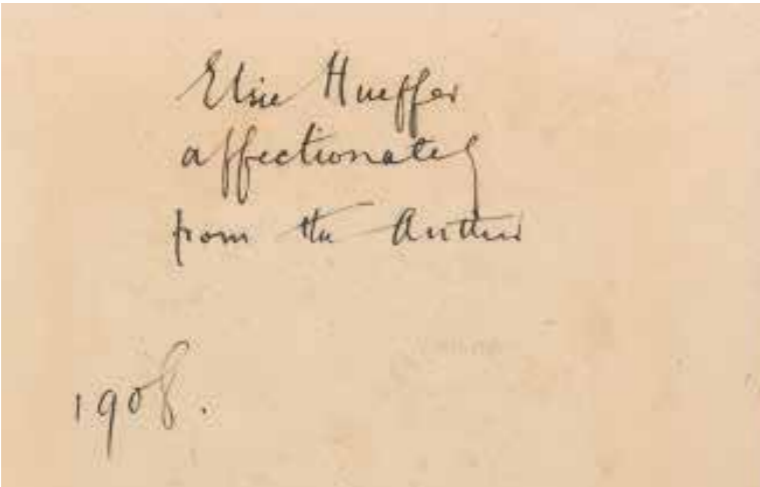 Elsie Hueffer
affectionately
from the Author
1908.